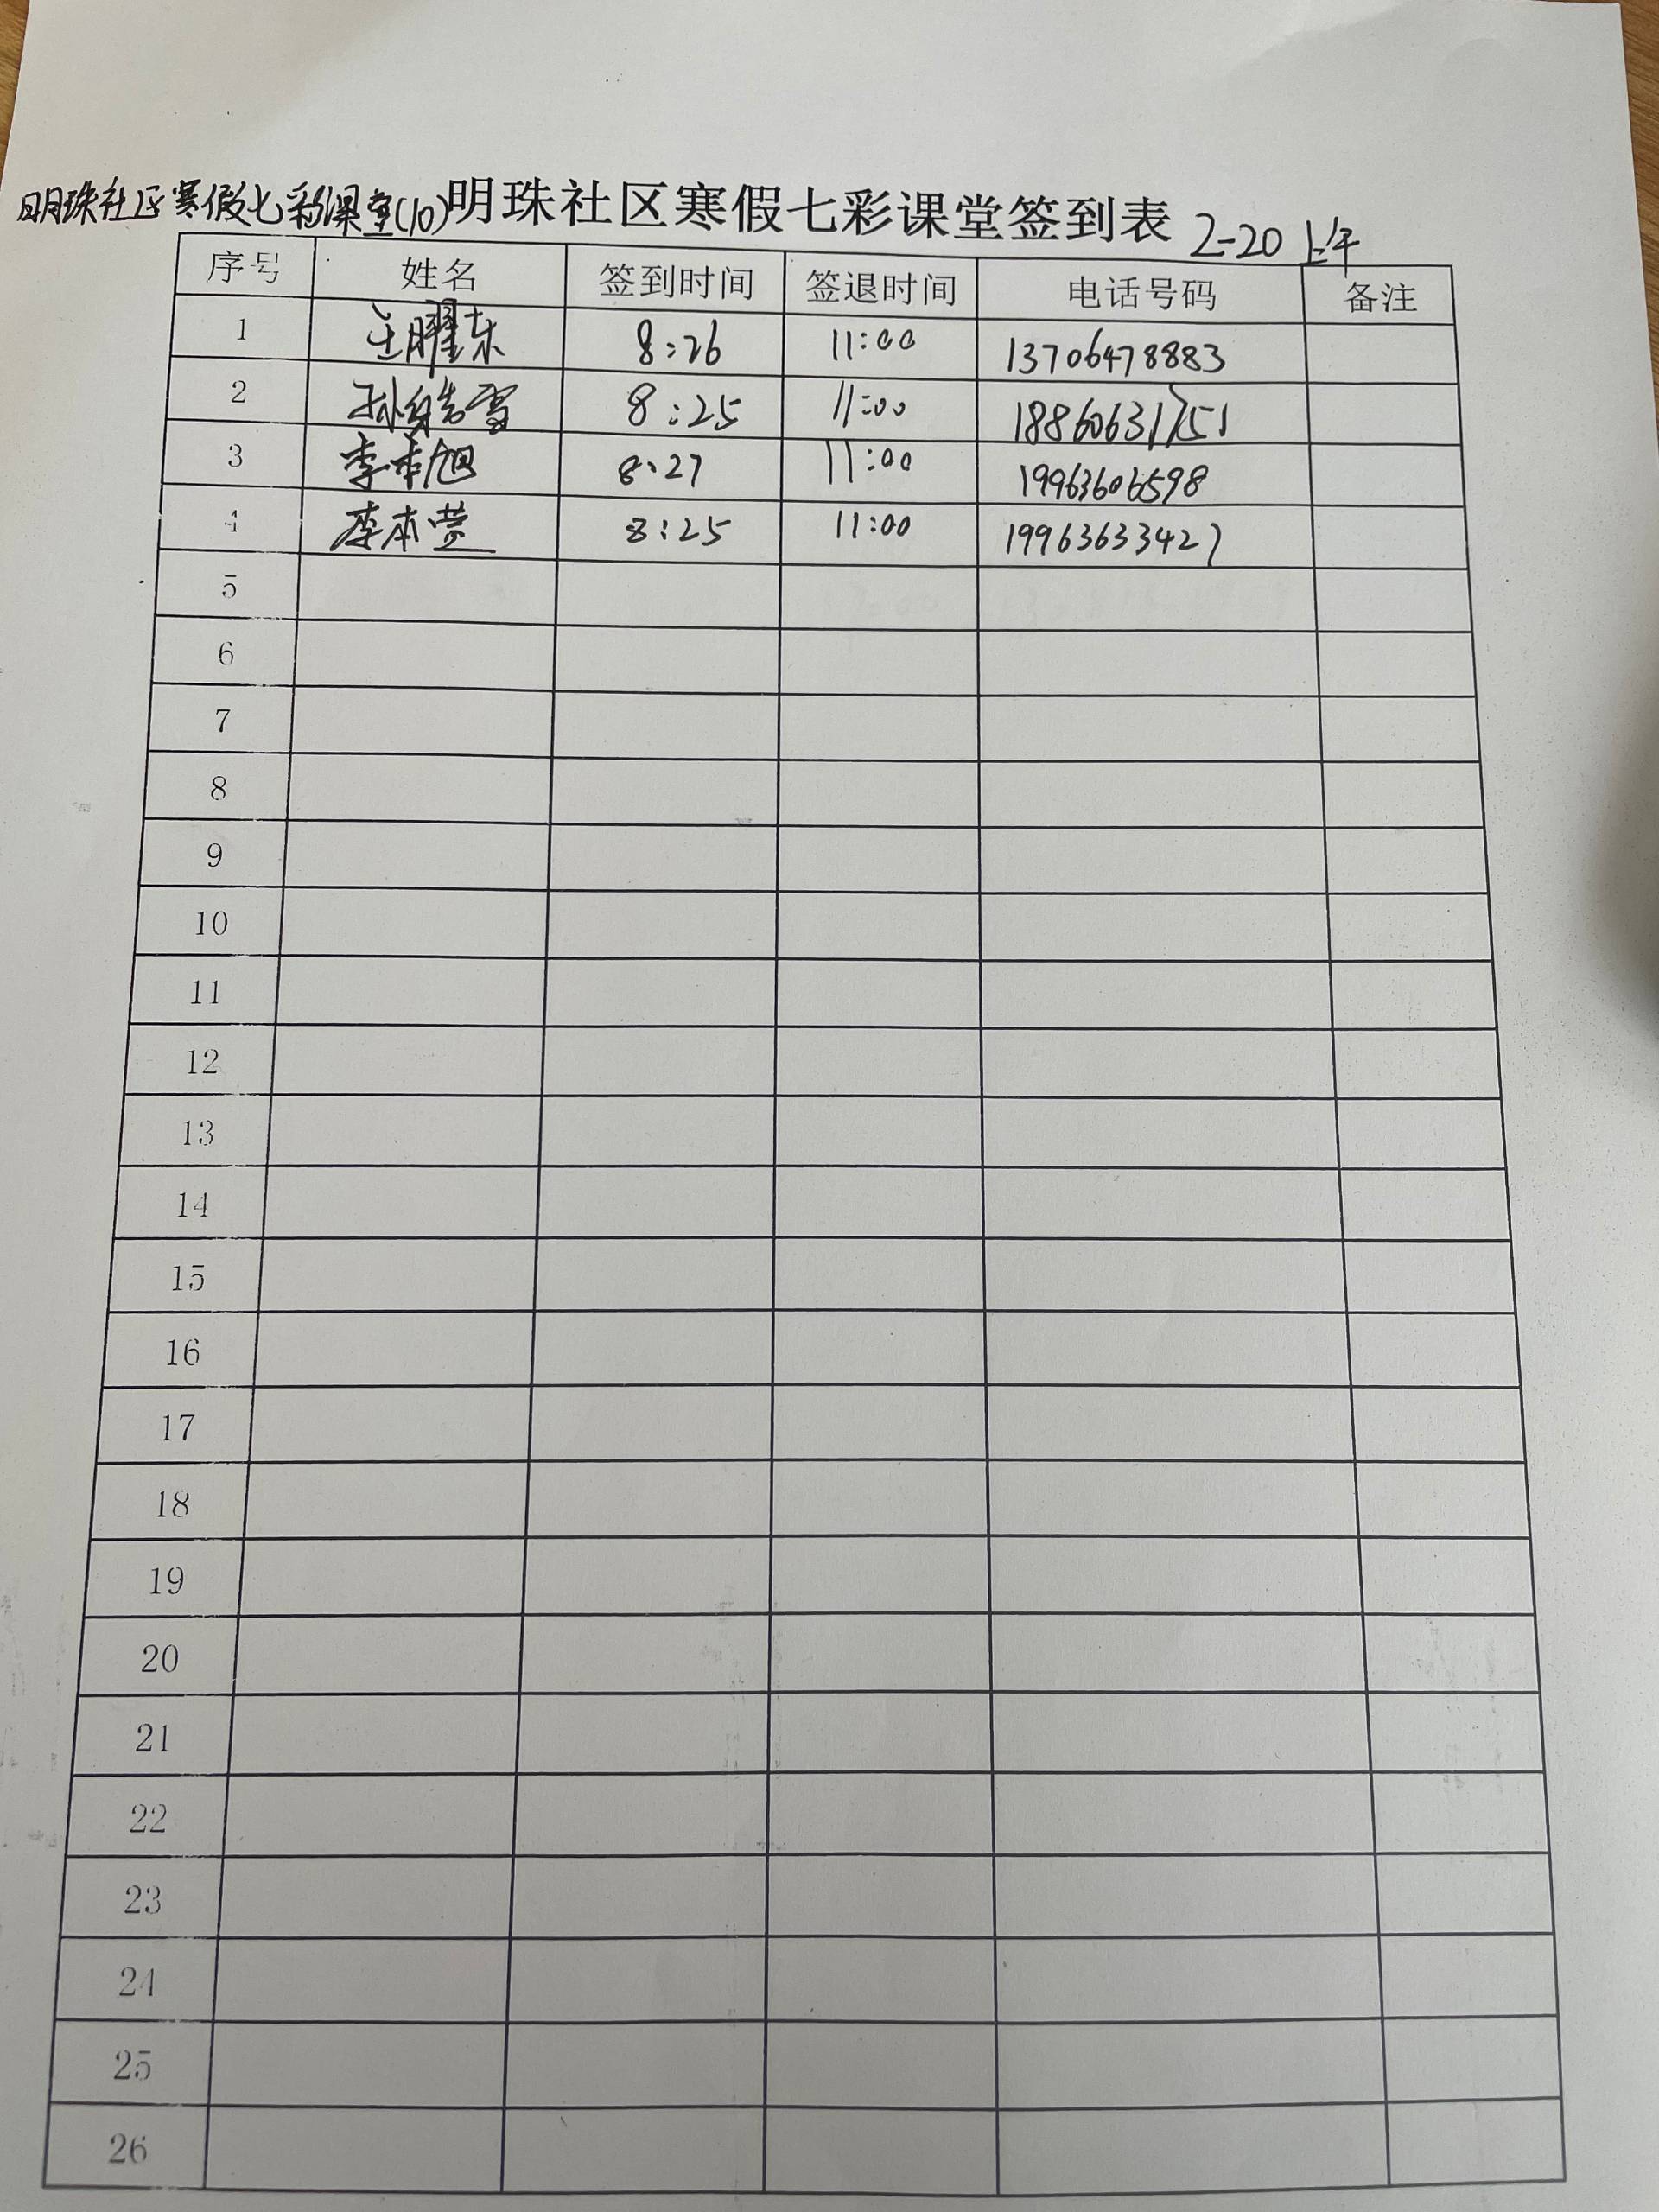 明珠社区寒假七彩课堂(10) 明珠社区寒假七彩课堂签到表 2-20 上午
序号 姓名 签到时间 签退时间 电话号码 备注
1 王耀东 8:26 11:00 13706478883
2 孙皓雪 8:25 11:00 18860631751
3 李本旭 8:27 11:00 19963606598
4 李本萱 8:25 11:00 19963633427
5
6
7
8
9
10
11
12
13
14
15
16
17
18
19
20
21
22
23
24
25
26